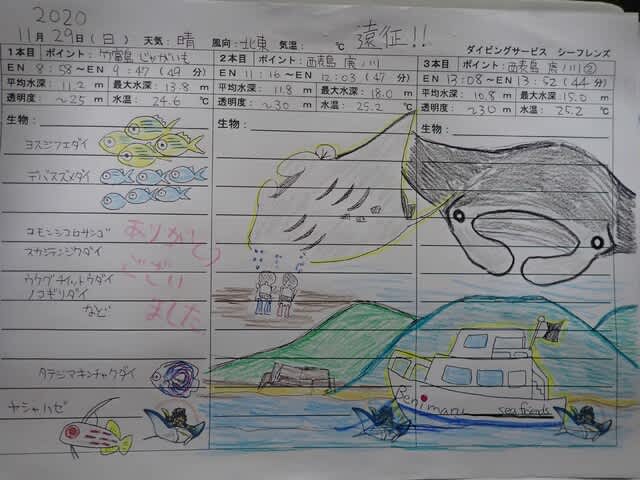 2020
11月29日(日) 天気:晴 風向:北東 気温: ℃ 遠征!!
ダイビングサービス シーフレンズ
1本目 ポイント:竹富島 じゃがいも
EN 8:58〜EN 9:47(49分)
平均水深:11.2 m 最大水深:13.8 m
透明度:〜25 m 水温:24.6 ℃
生物:
ヨスジフエダイ
デバスズメダイ
コモンシコロサンゴ
スカシテンジクダイ
ノコギリダイ
など
タテジマキンチャクダイ
ヤシャハゼ
ありがとう
ござい
ました
2本目 ポイント:西表島 鹿ノ川
EN 11:16〜EN 12:03(47分)
平均水深:11.8 m 最大水深:18.0 m
透明度:〜30 m 水温:25.2 ℃
生物:
3本目 ポイント:西表島 鹿ノ川②
EN 13:08〜EN 13:52(44分)
平均水深:10.8 m 最大水深:15.0 m
透明度:〜30 m 水温:25.2 ℃
生物:
Benimaru seafriends